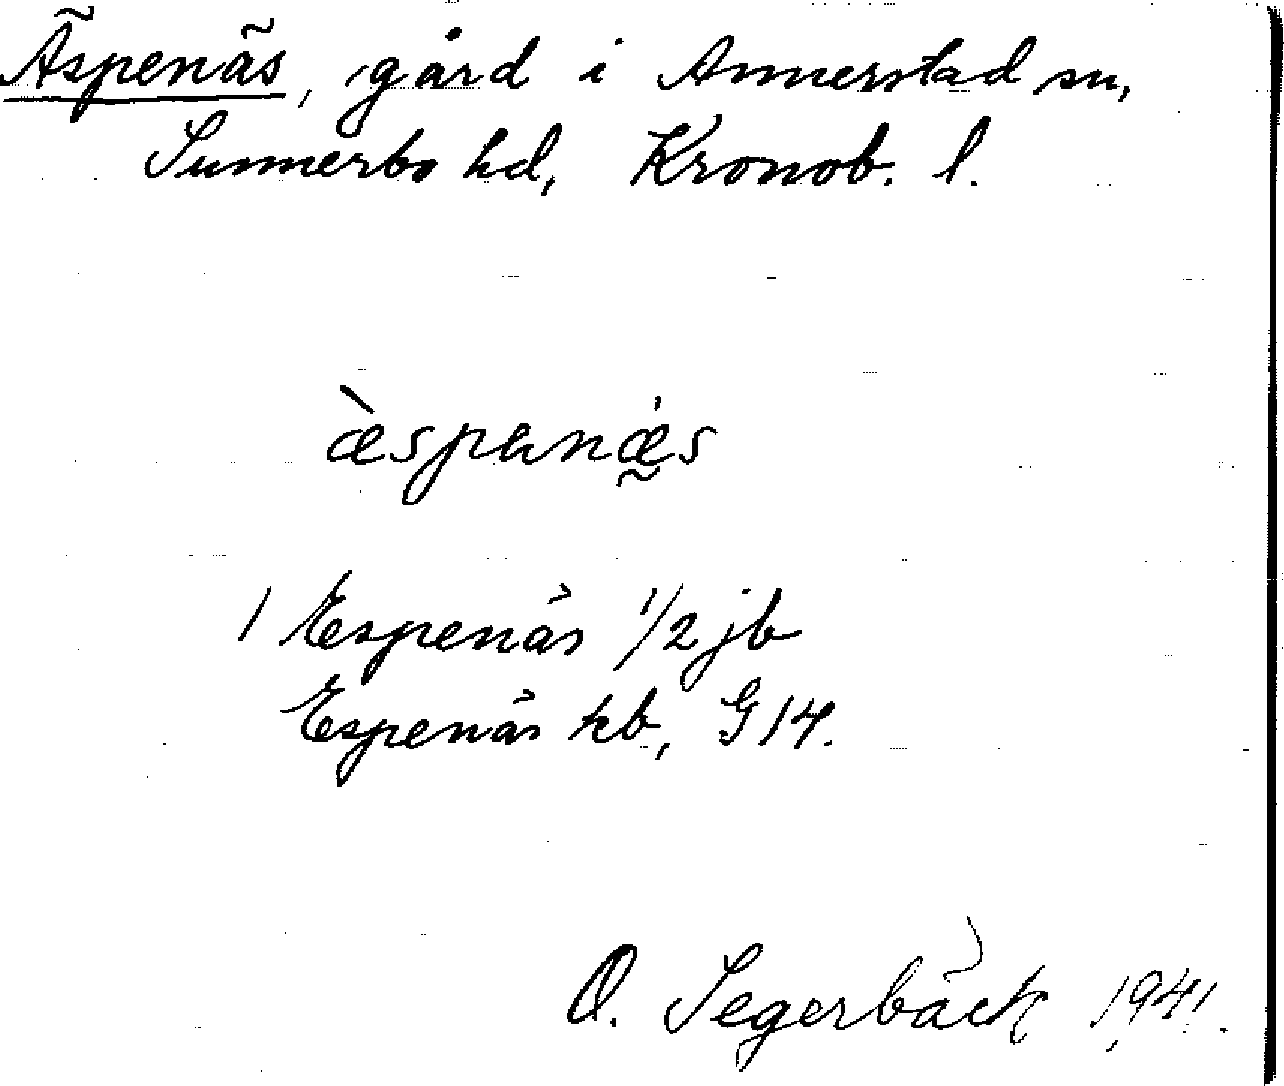 Äspenäs, gård i Annerstad sn,
Sunnerbo hd, Kronob. l.
æ̀spanæ̰̍s
1 Espenäs 1/2 jb
Espenäs kb, G 14.
O. Segerbäck 1941.